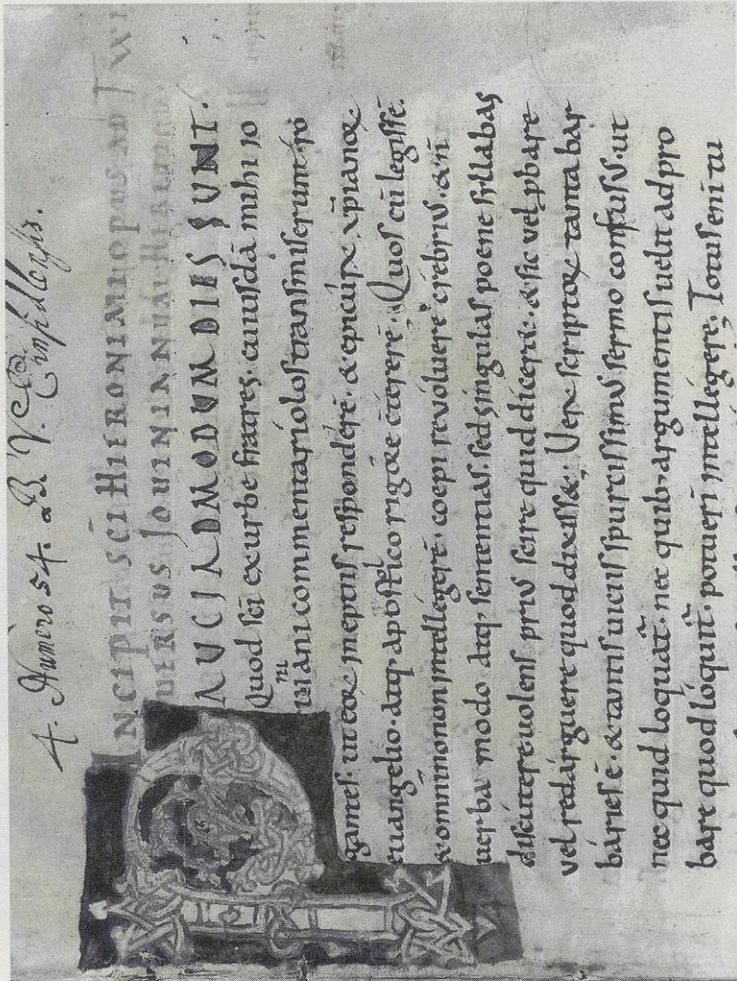 4. Numero 54. B. V.
NCIPIT SCĪ HIERONIMI OPUS AD
UERSUS JOUINIANUM HERETICUM.
AUCI ADMODUM DIES SUNT.
Quod sc̄i ex urbe fratres. cuiusdā mihi io
uiniani commentariolos transmiserunt. ro
gantes. ut eoꝝ ineptiis respondere. & epicurū xp̄ianoꝝ.
euangelio. atq; apostolico rigore c̄terere. Quos cū legisse.
& omnino non intellegere. coepi reuoluere crebrius. & n̄
uerba modo atq; sententias. sed singulas poene syllabas
discutere uolens prius scire quid diceret. & sic uel p̱bare
uel redarguere quod dixisset. Ueꝝ scriptoꝝ tanta bar
baries ē. & tantis uiciis spurcissimus sermo confusus. ut
nec quid loquat̄. nec quib; argumentis uelit ad pro
bare quod loquit̄. potueri intellegere. Totus enī tu